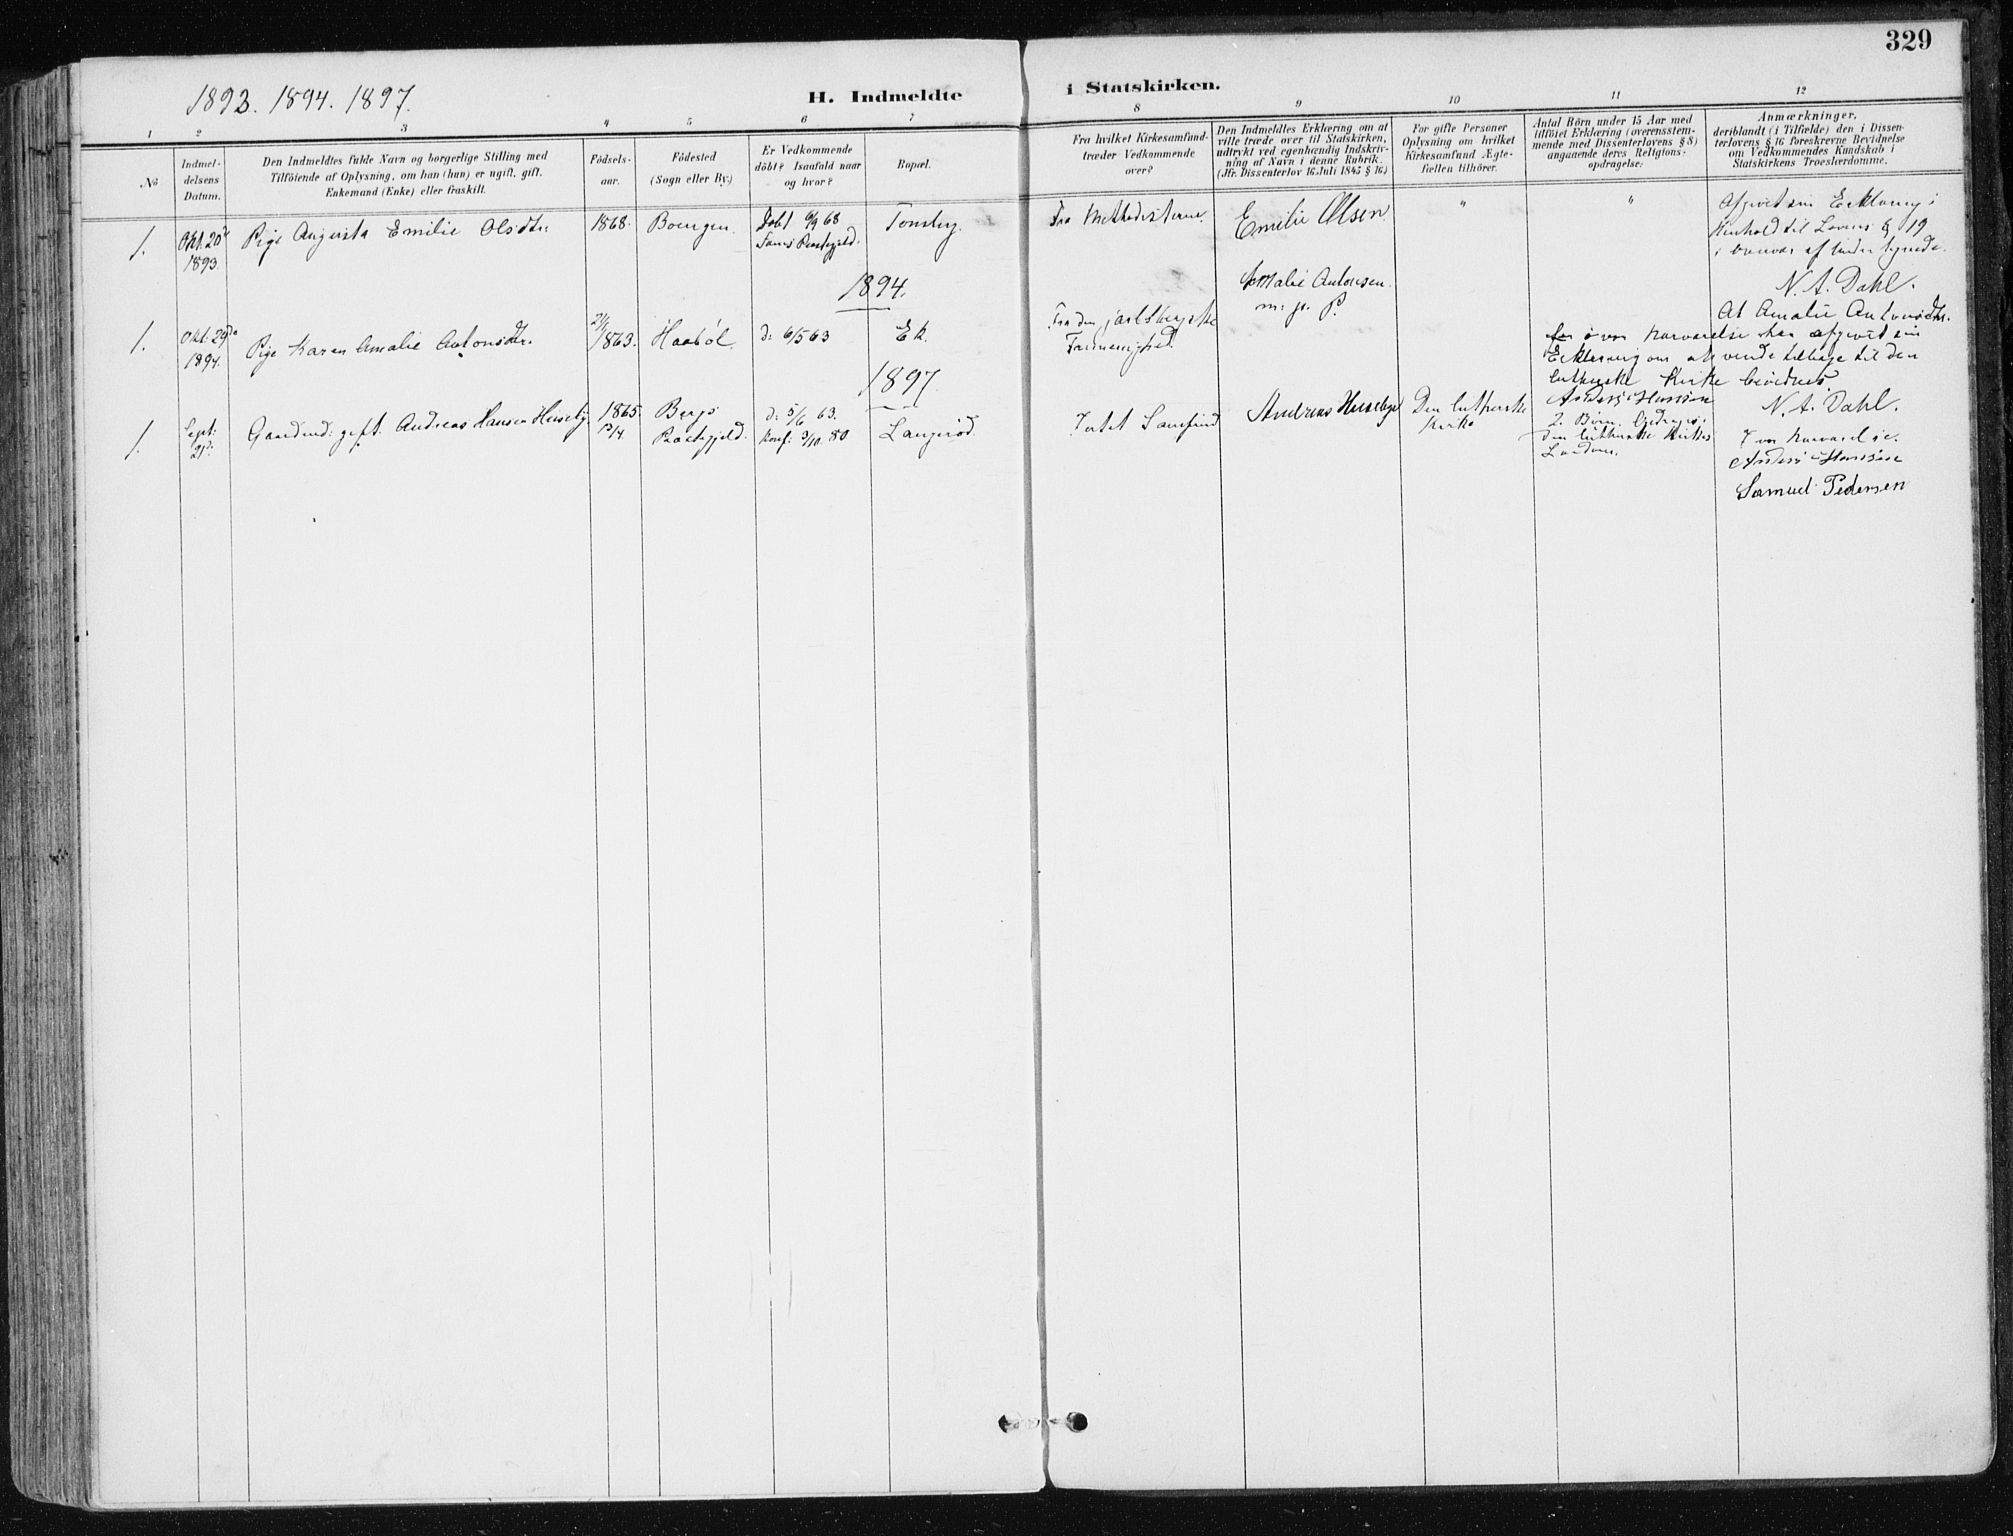 329
1893. 1894. 1897.
H. Indmeldte i Statskirken.
1 2 3 4 5 6 7 8 9 10 11 12
No
Indmel-
delsens
Datum.
Den Indmeldtes fulde Navn og borgerlige Stilling med
Tilføiende af Oplysning, om han (hun) er ugift, gift,
Enkemand (Enke) eller fraskilt.
Fødsels-
aar.
Fødested
(Sogn eller By.)
Er Vedkommende
døbt? Isaafald naar
og hvor?
Bopæl.
Fra hvilket Kirkesamfund-
træder Vedkommende
over?
Den Indmeldtes Erklæring om at
ville træde over til Statskirken,
udtrykt ved egenhændig Indskriv-
ning af Navn i denne Rubrik.
(Jfr. Dissenterlov 16 Juli 1845 § 16)
For gifte Personer
Oplysning om hvilket
Kirkesamfund Ægte-
fællen tilhører.
Antal Børn under 15 Aar med
tilføiet Erklæring (overensstem-
mende med Dissenterlovens § 8)
angaaende deres Religions-
opdragelse.
Anmærkninger,
deriblandt (i Tilfælde) den i Dissen-
terlovens § 16 foreskrevne Bevidnelse
om Vedkommendes Kundskab i
Statskirkens Troeslærdomme.
1.
Okt. 20de
1893.
Pige Augusta Emilie Olsdtr.
1868.
Døbt 6/9 68
Præstegjeld.
Tønsby.
Fra Methodisterne.
Emilie Olsen.
"
"
Afgivet sin Erklæring i
Henhold til Lovens § 19
i overvær af undertegnede.
N. A. Dahl.
1894.
1.
Okt. 29de
1894.
Pige Karen Amalie Antonsdtr.
1863.
Haabøl.
d: 6/5 63
Ek.
Fra den jarlsbergske
Frimenighed.
Amalie Antonsen.
m. p. P.
At Amalie Antonsdtr.
for i vor Nærværelse har afgivet sin
Erklæring om at vende tilbage til den
lutherske Kirke bevidnes.
Anders Hansen
N. A. Dahl.
1897.
1.
Sept:
Gaardmd: gift. Andreas Hansen Huseby
1865
13/4.
Bergs
Præstegjeld.
d: 5/6 63.
Konf: 3/10. 80
Langerød.
Andreas Huseby
Den lutherske
Kirke
2 Børn. Opdrages i
den lutherske Kirkes
Lærdom.
I vor Nærværelse.
Anders Hansen
Samuel Pedersen